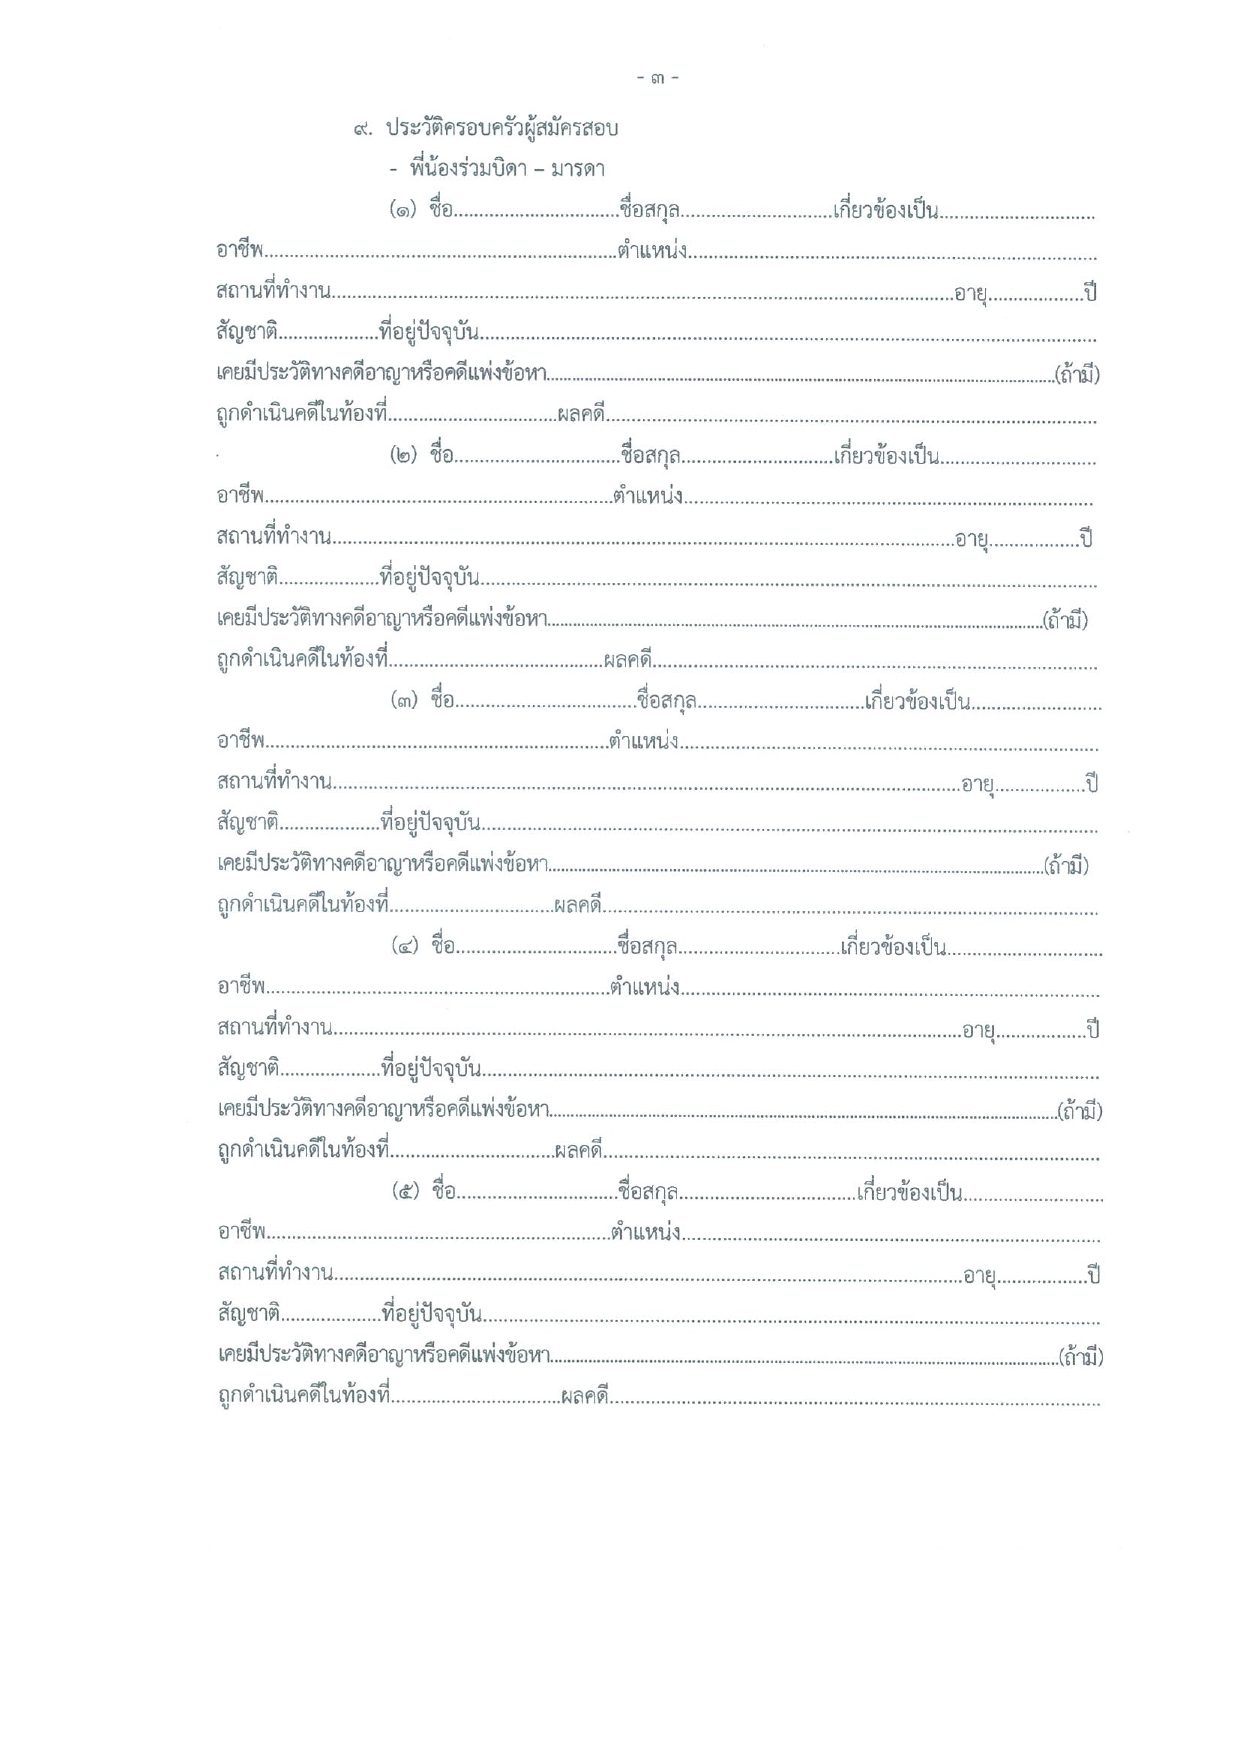 - ๓ -
๙. ประวัติครอบครัวผู้สมัครสอบ
- พี่น้องร่วมบิดา – มารดา
(๑) ชื่อ..............................ชื่อสกุล............................เกี่ยวข้องเป็น............................
อาชีพ................................................................ตำแหน่ง..........................................................................
สถานที่ทำงาน................................................................................................................อายุ..................ปี
สัญชาติ...................ที่อยู่ปัจจุบัน................................................................................................................
เคยมีประวัติทางคดีอาญาหรือคดีแพ่งข้อหา............................................................................................(ถ้ามี)
ถูกดำเนินคดีในท้องที่...............................ผลคดี.........................................................................................
(๒) ชื่อ..............................ชื่อสกุล............................เกี่ยวข้องเป็น............................
อาชีพ...............................................................ตำแหน่ง..........................................................................
สถานที่ทำงาน................................................................................................................อายุ.................ปี
สัญชาติ...................ที่อยู่ปัจจุบัน................................................................................................................
เคยมีประวัติทางคดีอาญาหรือคดีแพ่งข้อหา..........................................................................................(ถ้ามี)
ถูกดำเนินคดีในท้องที่.......................................ผลคดี.................................................................................
(๓) ชื่อ.................................ชื่อสกุล...............................เกี่ยวข้องเป็น........................
อาชีพ...............................................................ตำแหน่ง............................................................................
สถานที่ทำงาน.................................................................................................................อายุ.................ปี
สัญชาติ...................ที่อยู่ปัจจุบัน................................................................................................................
เคยมีประวัติทางคดีอาญาหรือคดีแพ่งข้อหา..........................................................................................(ถ้ามี)
ถูกดำเนินคดีในท้องที่..............................ผลคดี..........................................................................................
(๔) ชื่อ.............................ชื่อสกุล.............................เกี่ยวข้องเป็น............................
อาชีพ...............................................................ตำแหน่ง............................................................................
สถานที่ทำงาน.................................................................................................................อายุ.................ปี
สัญชาติ...................ที่อยู่ปัจจุบัน................................................................................................................
เคยมีประวัติทางคดีอาญาหรือคดีแพ่งข้อหา............................................................................................(ถ้ามี)
ถูกดำเนินคดีในท้องที่..............................ผลคดี..........................................................................................
(๕) ชื่อ.............................ชื่อสกุล................................เกี่ยวข้องเป็น.........................
อาชีพ...............................................................ตำแหน่ง............................................................................
สถานที่ทำงาน.................................................................................................................อายุ.................ปี
สัญชาติ...................ที่อยู่ปัจจุบัน................................................................................................................
เคยมีประวัติทางคดีอาญาหรือคดีแพ่งข้อหา............................................................................................(ถ้ามี)
ถูกดำเนินคดีในท้องที่...............................ผลคดี.........................................................................................